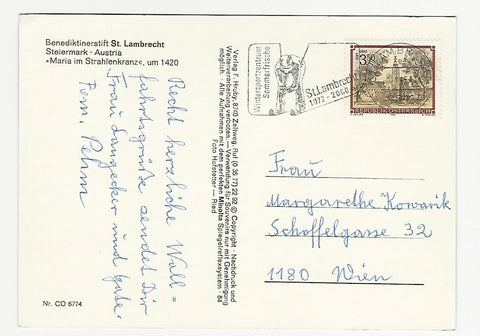 Benediktinerstift St. Lambrecht
Steiermark · Austria
»Maria im Strahlenkranz«, um 1420
Recht herzliche Wall=
fahrtsgrüße sendet Dir
Frau Langecker und
Fam. Pehm
Nr. CO 6774
Verlag F. Hruby, 8740 Zeltweg, Ruf (0 35 77) 22 92 © Copyright · Nachdruck und
Weiterverarbeitung verboten. — Verwendung für Souvenirs nur mit Genehmigung
möglich. · Alle Aufnahmen mit dem perfekten Spiegelreflexsystem · 84
Foto Hofstetter — Ried
St. Lambrecht
REPUBLIK ÖSTERREICH
Frau
Margarethe Kowarik
Schoffelgasse 32
1180 Wien